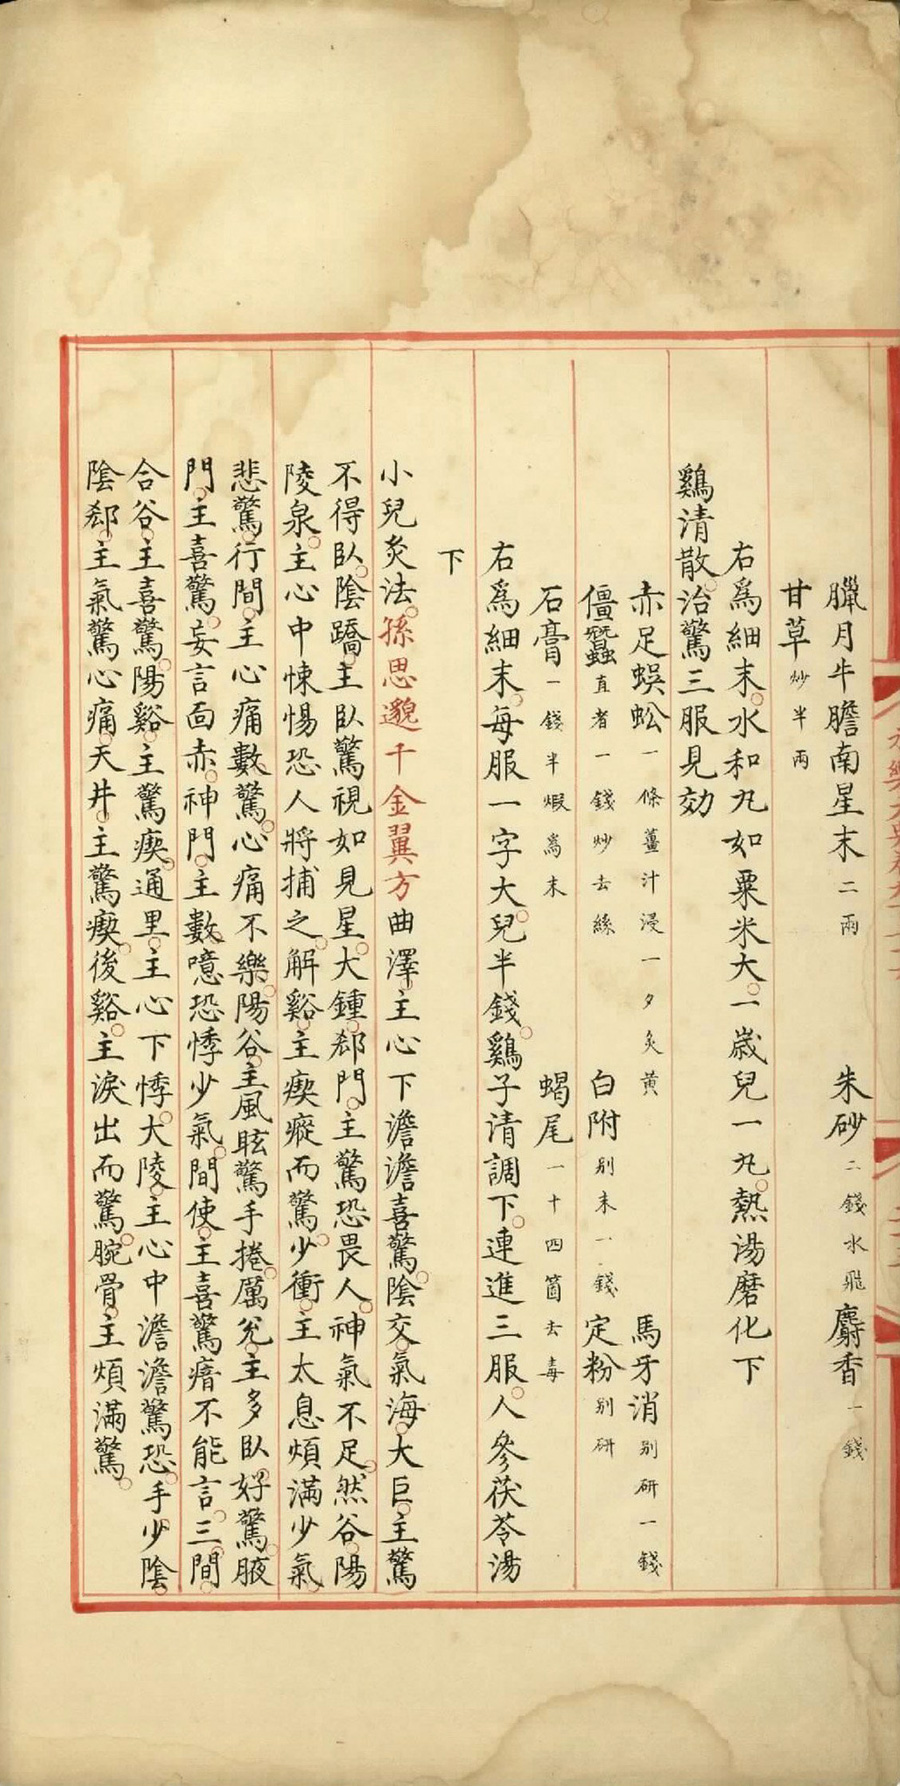 臘月牛膽南星末二兩　朱砂二錢水飛　麝香一錢
甘草炒半兩
右爲細末水和丸如粟米大一歲兒一丸熱湯磨化下
鷄清散治驚三服見効
赤足蜈蚣一條薑汁浸一夕炙黄　馬牙消別研一錢
僵蠶直者一錢炒去絲　白附別末一錢　定粉別研
石膏一錢半煆爲末　蝎尾一十四箇去毒
右爲細末每服一字大兒半錢鷄子清調下連進三服人參茯苓湯
下
小兒炙法孫思邈千金翼方曲澤主心下澹澹喜驚陰交氣海大巨主驚
不得臥陰蹻主臥驚視如見星大鍾郄門主驚恐畏人神氣不足然谷陽
陵泉主心中悚惕恐人將捕之解谿主瘈瘲而驚少衝主太息煩滿少氣
悲驚行間主心痛數驚心痛不樂陽谷主風眩驚手捲厲兊主多臥好驚腋
門主喜驚妄言面赤神門主數噫恐悸少氣間使主喜驚瘖不能言三間
合谷主喜驚陽谿主驚瘈通里主心下悸大陵主心中澹澹驚恐手少陰
陰郄主氣驚心痛天井主驚瘈後谿主淚出而驚腕骨主煩滿驚